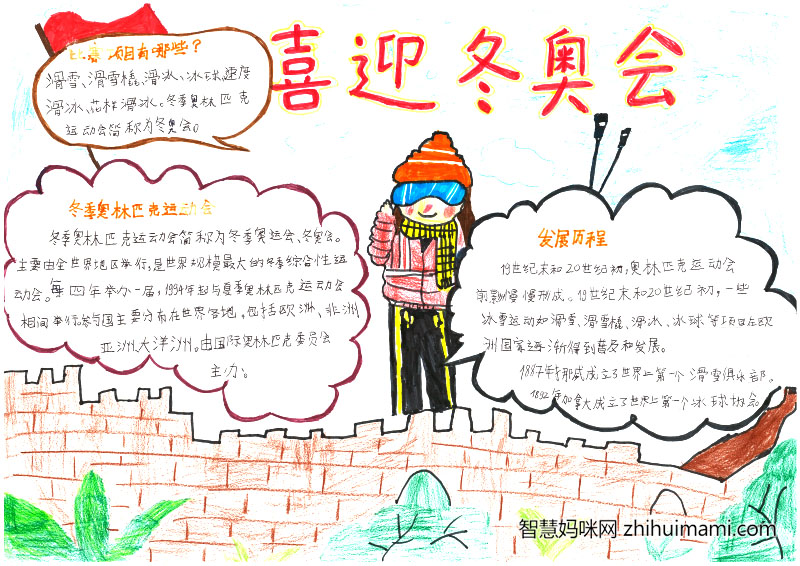 喜迎冬奥会
比赛项目有哪些？
滑雪、滑雪橇、滑冰、冰球、速度
滑冰、花样滑冰。冬季奥林匹克
运动会简称为冬奥会。
冬季奥林匹克运动会
冬季奥林匹克运动会简称为冬季奥运会、冬奥会。
主要由全世界地区举行，是世界规模最大的冬季综合性运
动会。每四年举办一届，1994年起与夏季奥林匹克运动会
相间举行。参与国主要分布在世界各地，包括欧洲、非洲
亚洲、大洋洲。由国际奥林匹克委员会
主办。
发展历程
19世纪末和20世纪初，奥林匹克运动会
的慢慢形成。19世纪末和20世纪初，一些
冰雪运动如滑雪、滑雪橇、滑冰、冰球等项目在欧
洲国家逐渐得到普及和发展。
1887年挪威成立了世界上第一个滑雪俱乐部。
1892年加拿大成立了世界上第一个冰球协会。
智慧妈咪网 zhihuimami.com